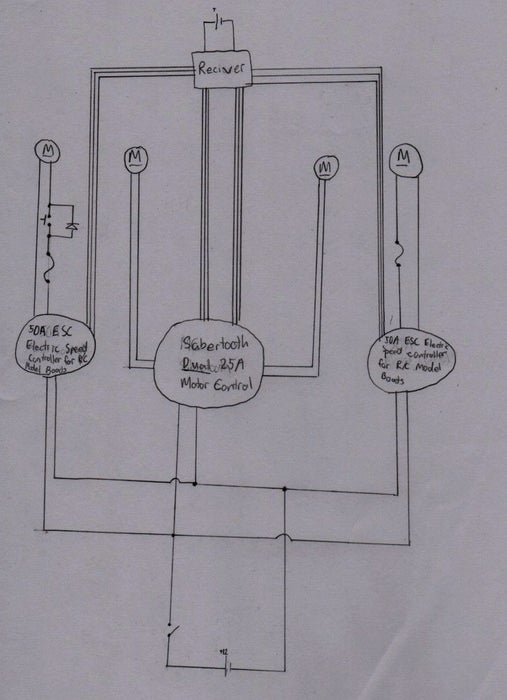 Reciver
M
M
M
M
50A ESC
Electric Speed
Controller for RC
Model Boats
Sabertooth
Dual 25A
Motor Control
50A ESC Electric
Speed controller
for R/C Model
Boats
12